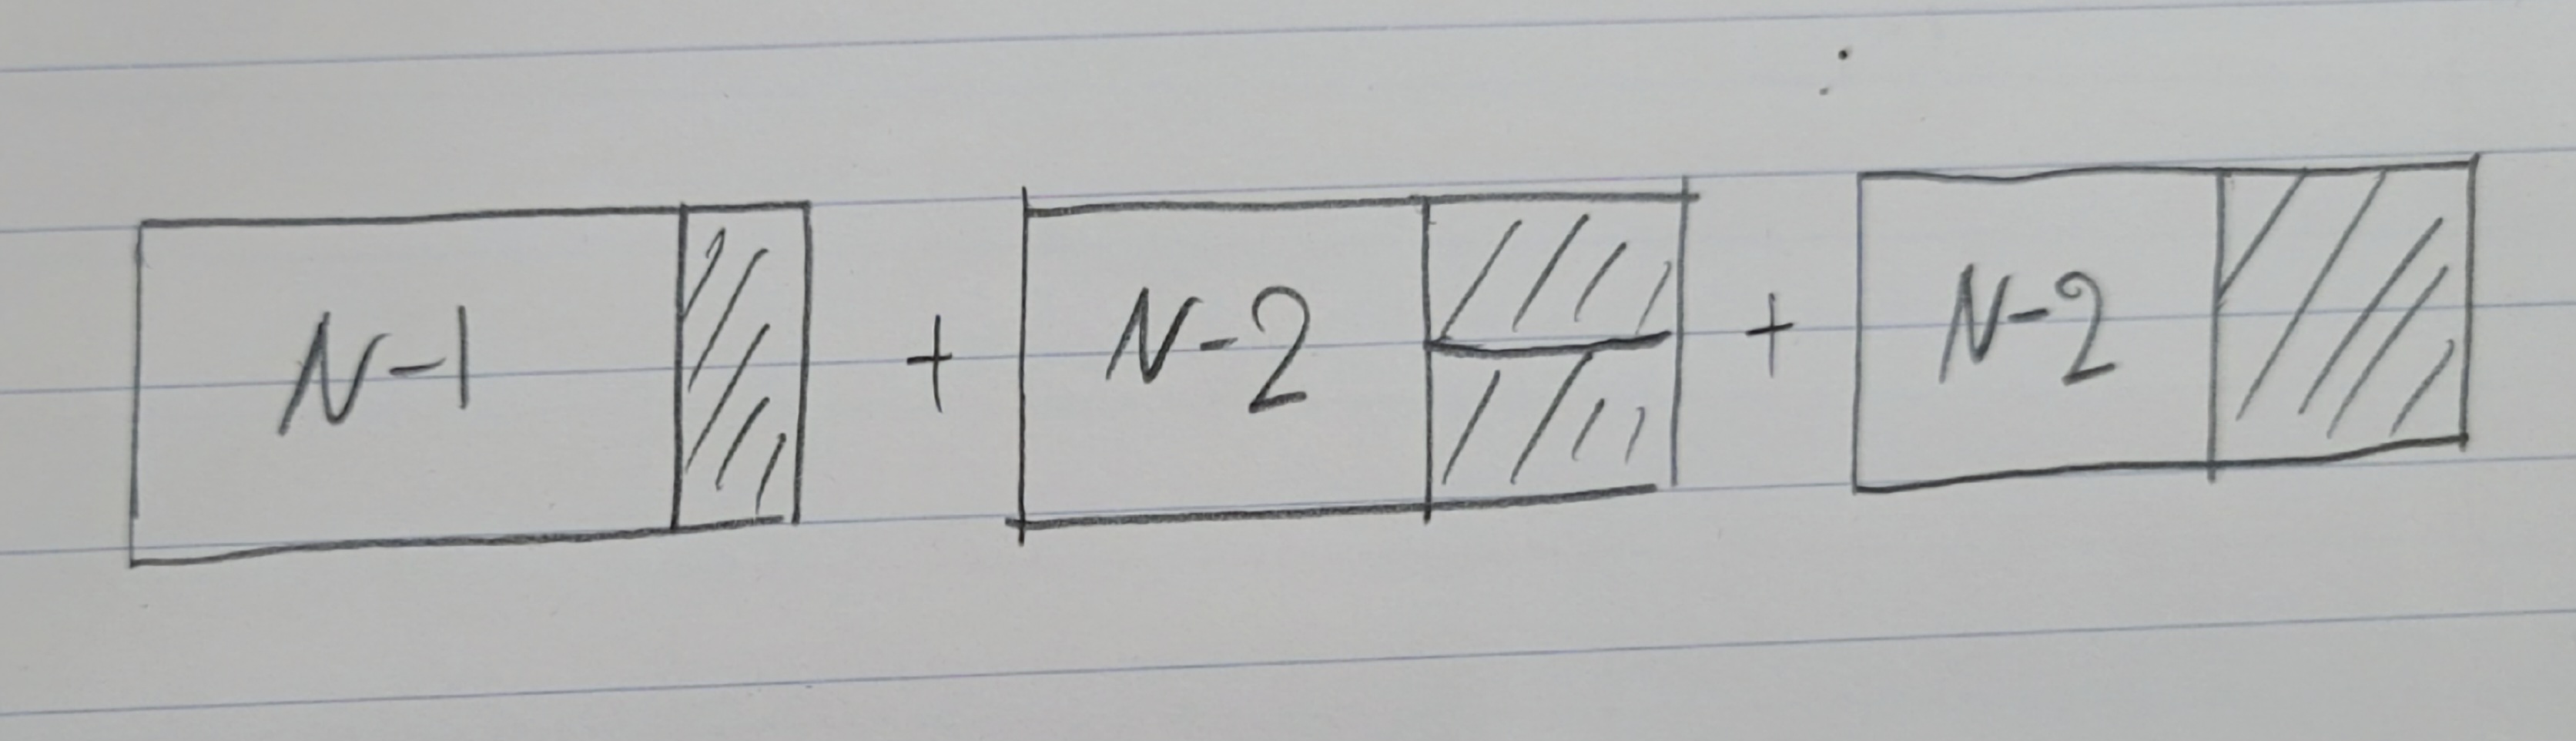 N-1 + N-2 + N-2